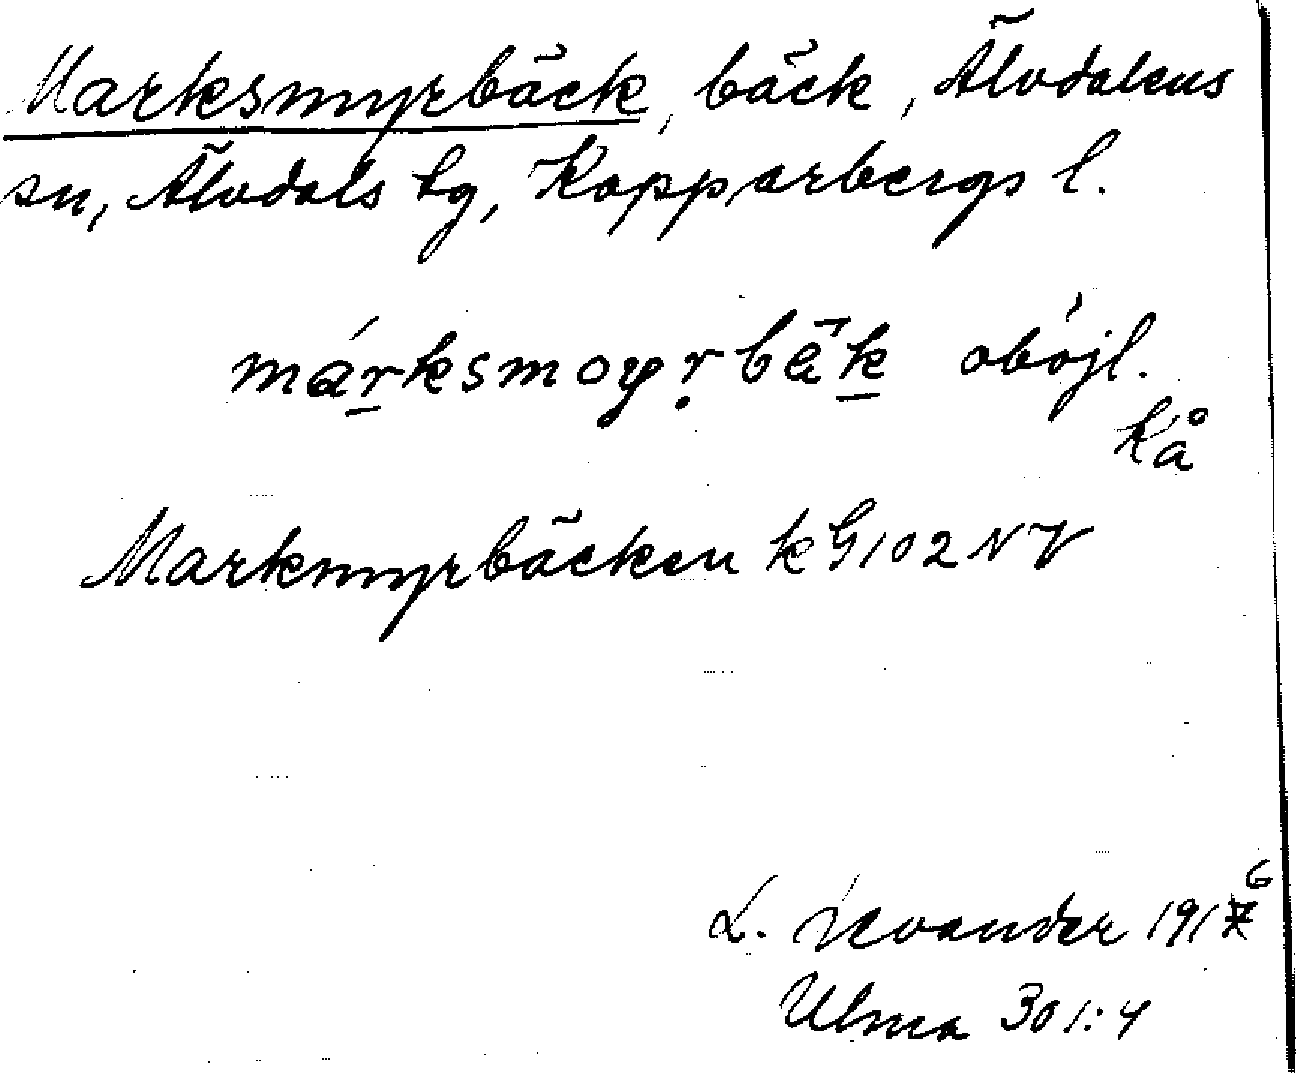 Marksmyrbäck, bäck, Älvdalens
sn, Älvdals tg, Kopparbergs l.
márksmoyṛbä̂k obőjl.
kå
Markmyrbäcken kG102NV
L. Levander 1916
Ulma 301:4